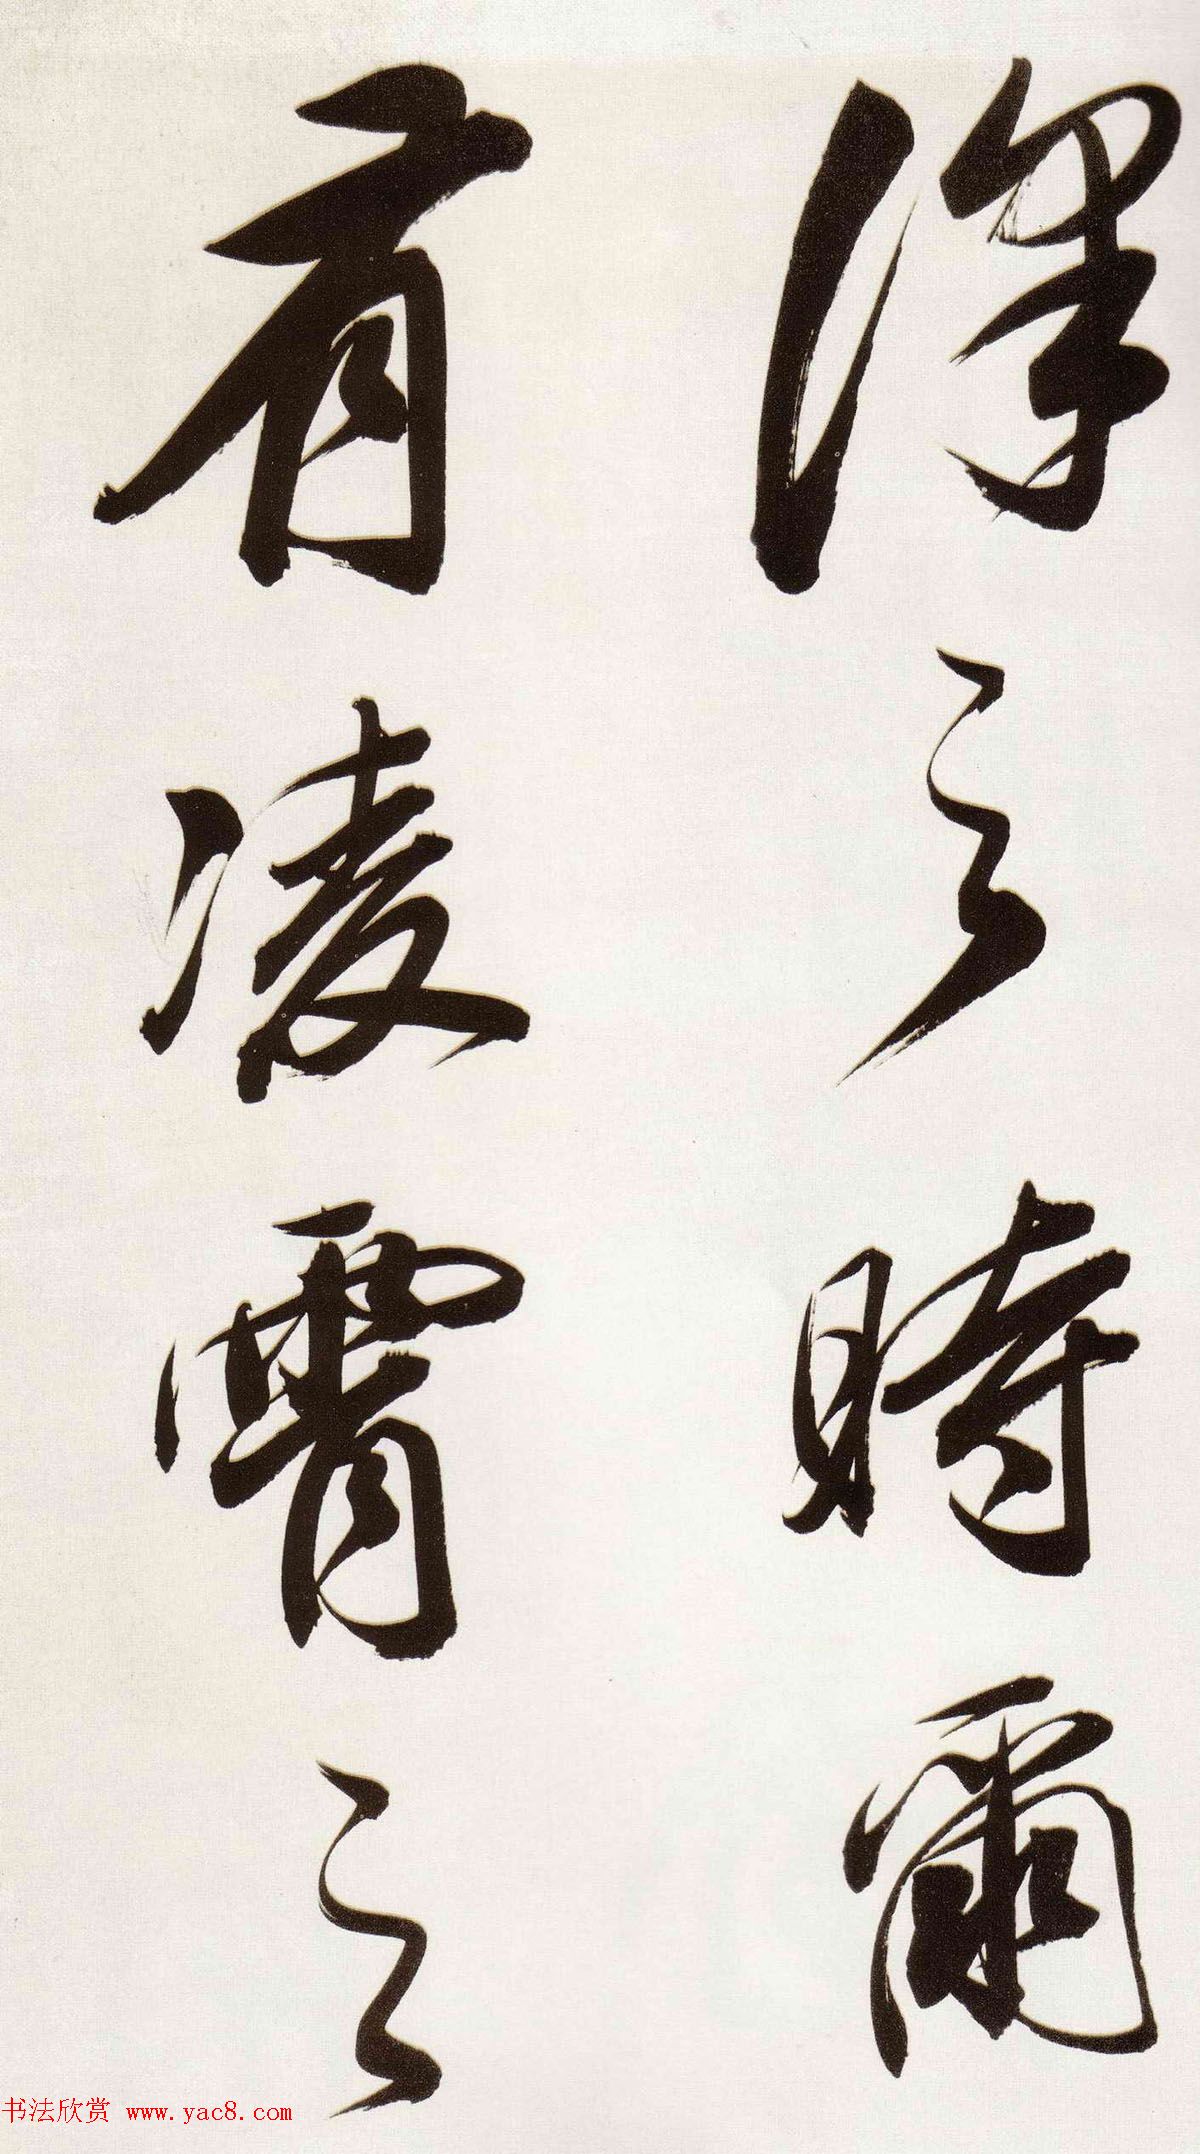 澤之時爾
有凌霄之
书法欣赏 www.yac8.com